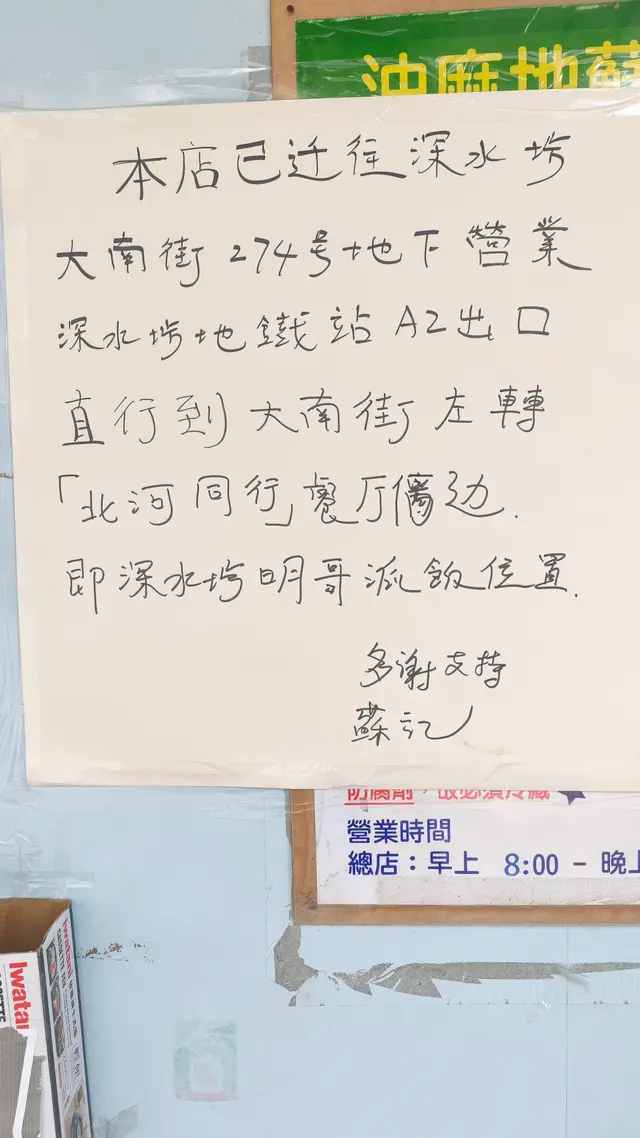 油麻地蘇
本店已迁往深水埗
大南街 274号地下營業
深水埗地鐵站 A2出口
直行到大南街左轉
「北河同行」餐厅傍边.
即深水埗明哥派飯位置.
多谢支持
蘇记
防腐劑,故必須冷藏
營業時間
總店:早上 8:00 - 晚上
Iwatani